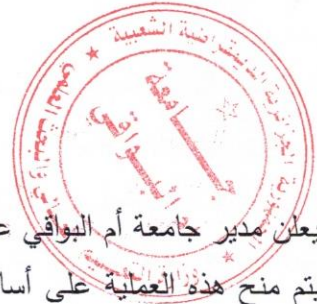 الجمهورية الجزائرية الديمقراطية الشعبية
جامعة
أم البواقي
يعلن مدير جامعة أم البواقي
يتم منح هذه العملية على